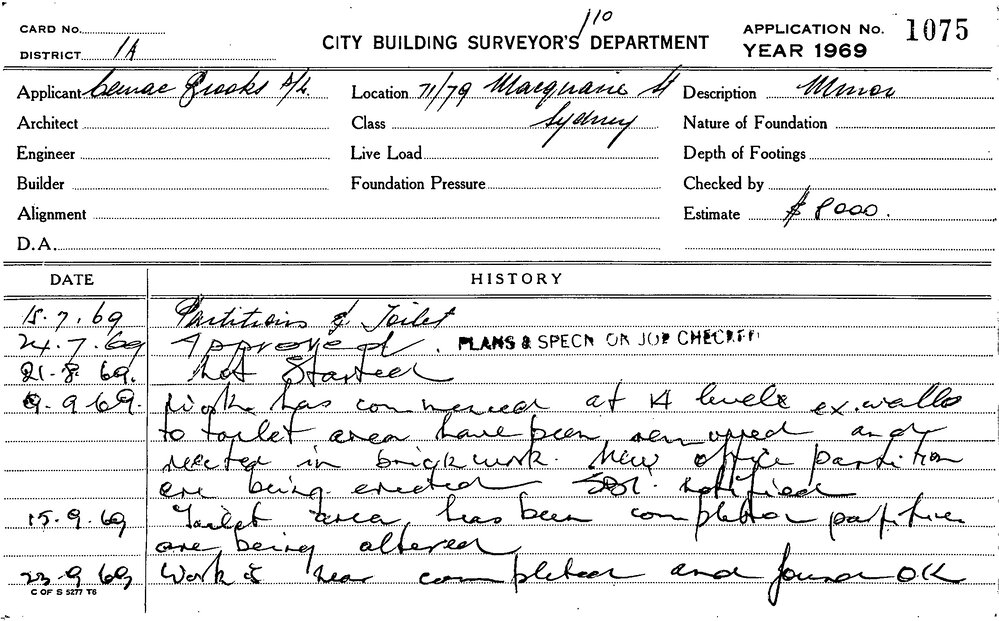 110
CARD No. CITY BUILDING SURVEYOR'S DEPARTMENT APPLICATION No. 1075
DISTRICT 1A YEAR 1969
Applicant Brooks P/L. Location 71/79 Macquarie St Description Minor
Architect Class Sydney Nature of Foundation
Engineer Live Load Depth of Footings
Builder Foundation Pressure Checked by
Alignment Estimate $ 8000.
D.A.
DATE HISTORY
15.7.69 Partitions & Toilet
24.7.69 Approved. PLANS & SPECN ON JOB CHECKED
21.8.69. Not Started
9.9.69. Work has commenced at 14 levels ex. walls
to toilet area have been removed and
erected in brickwork. New office partition
are being erected notified
15.9.69 Toilet area has been partition
are being altered
23.9.69 Work is near completed and found OK
C OF S 5277 T6